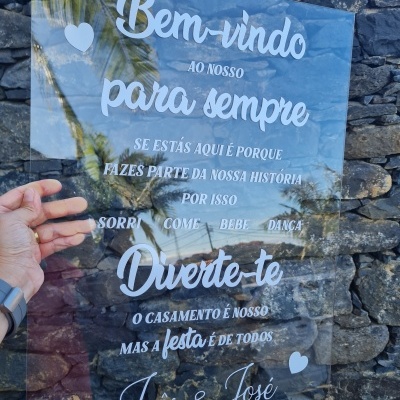 Bem-vindo
AO NOSSO
para sempre
SE ESTÁS AQUI É PORQUE
FAZES PARTE DA NOSSA HISTÓRIA
POR ISSO
SORRI COME BEBE DANÇA
Diverte-te
O CASAMENTO É NOSSO
MAS A festa É DE TODOS
& José